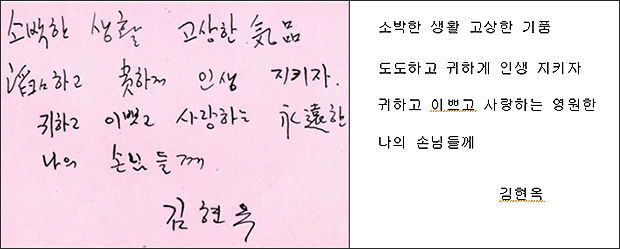 소박한 생활 고상한 氣品
貴하게 인생 지키자.
귀하고 이쁘고 사랑하는 永遠한
나의 손님들께
김현옥
소박한 생활 고상한 기품
도도하고 귀하게 인생 지키자
귀하고 이쁘고 사랑하는 영원한
나의 손님들께
김현옥